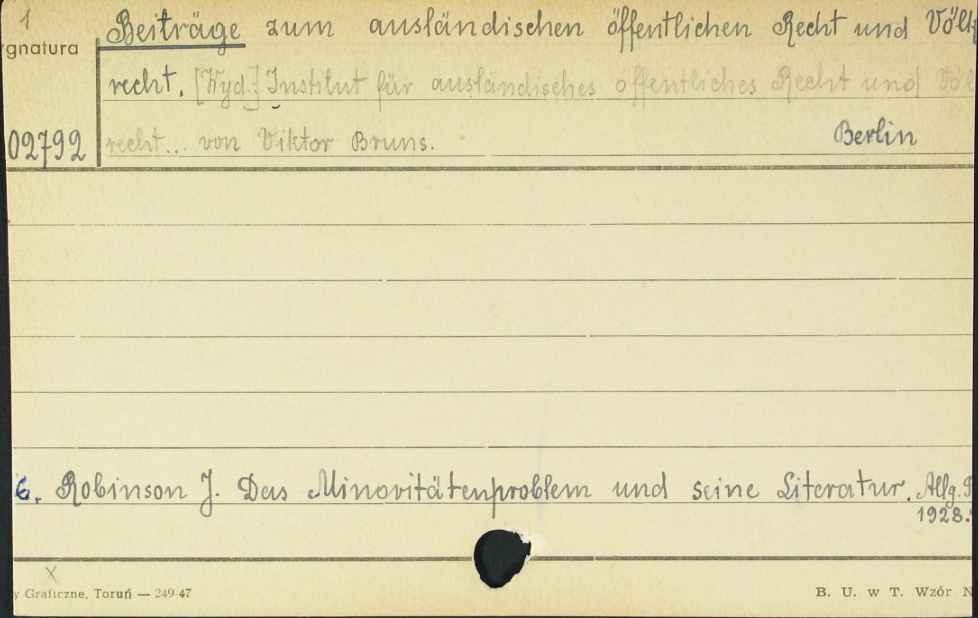 1
gnatura
Beiträge zum ausländischen öffentlichen Recht und Völk
recht. [Wyd.:] Institut für ausländisches öffentliches Recht und Völ
02792 recht... von Viktor Bruns. Berlin
6. Robinson J. Das Minoritätenproblem und seine Literatur. Allg.
1928.
x
y Graficzne, Toruń — 249-47
B. U. w T. Wzór N